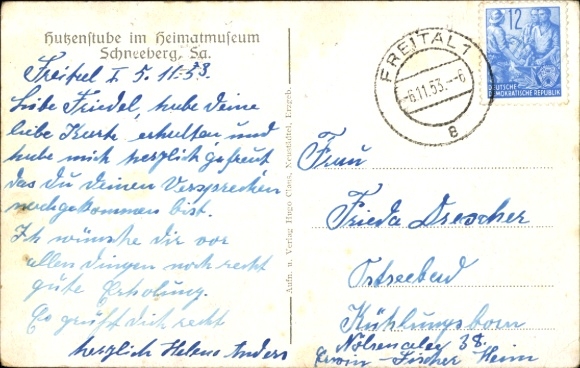 Hutzenstube im Heimatmuseum
Schneeberg, Sa.
Freital I 5.11.53.
Liebe Friedel, habe deine
liebe Karte erhalten, und
habe mich herzlich gefreut
das du deinen Versprechen
nachgekommen bist.
Ich wünsche dir vor
allen dingen noch recht
gute Erholung.
Es grüsst dich recht
herzlich Helene Anders
Aufn. u. Verlag Hugo Claus, Neustädtel, Erzgeb.
FREITAL 1
-6.11.53.--6
8
12
DEUTSCHE
DEMOKRATISCHE REPUBLIK
Frau
Frieda Drescher
Ostseebad
Kühlungsborn
38.
Erwin-Fischer Heim